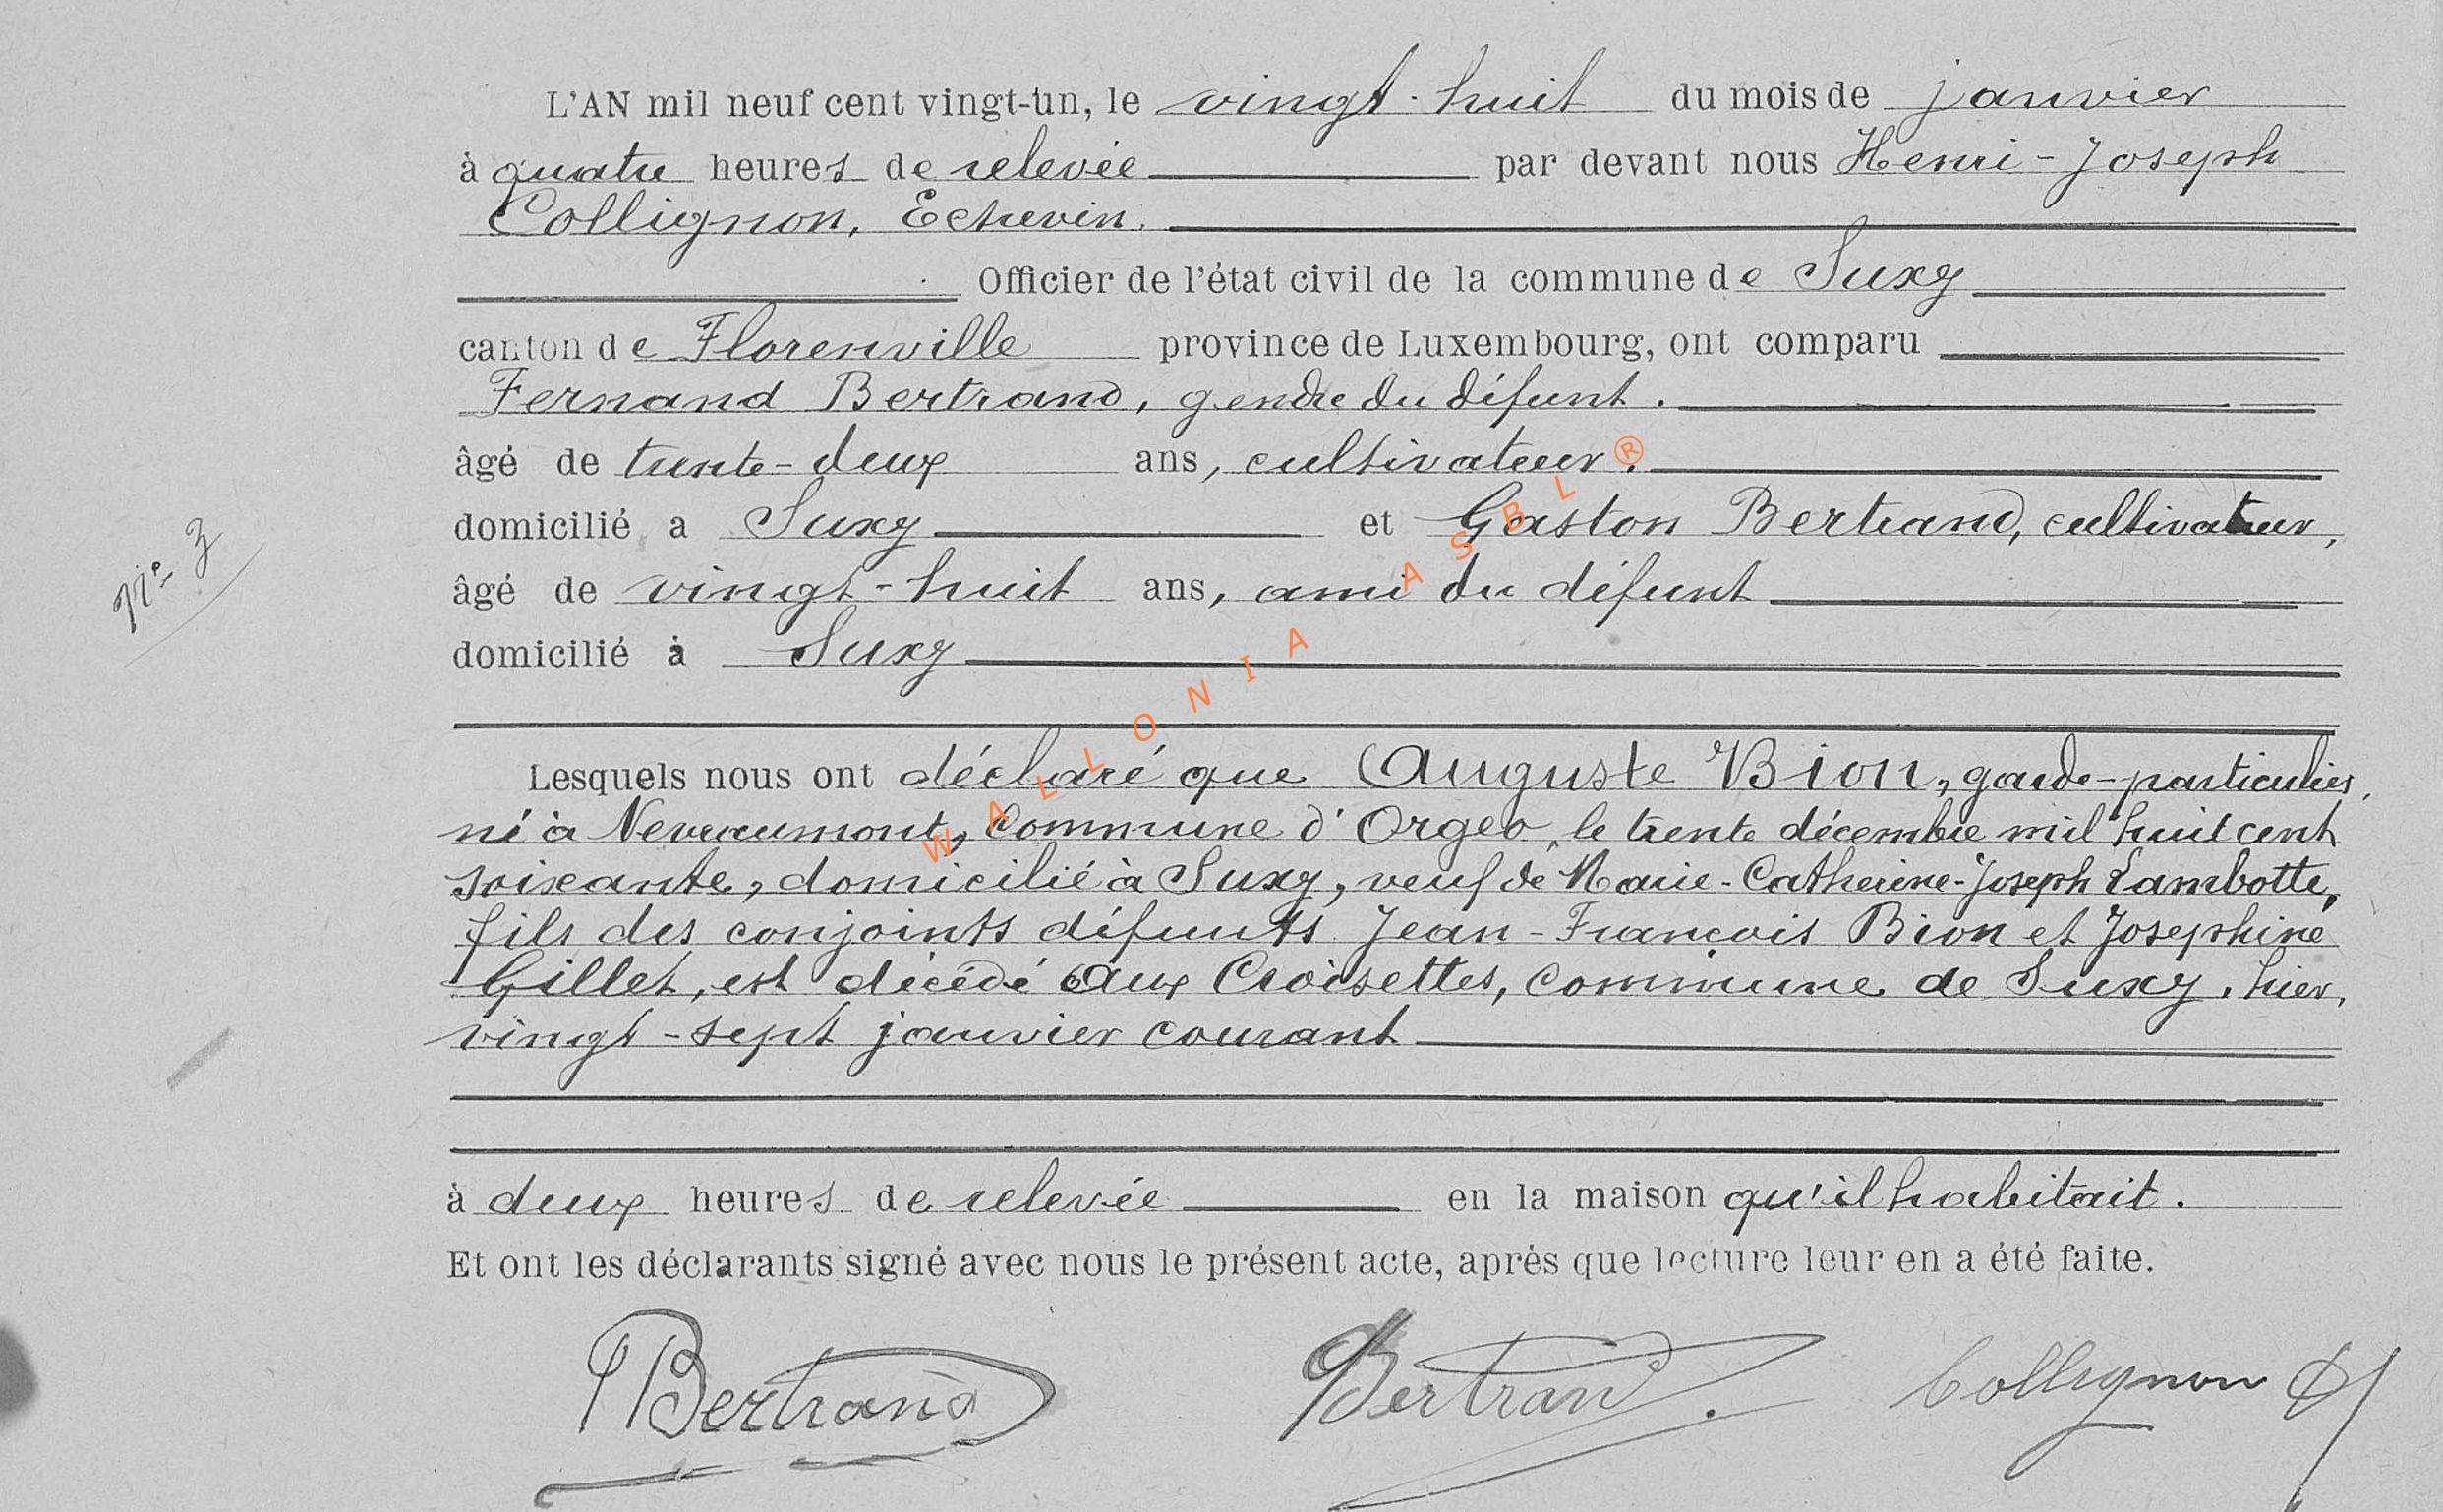 L'AN mil neuf cent vingt-un, le vingt-huit du mois de janvier
à quatre heures de relevée par devant nous Henri-Joseph
Collignon, Echevin.
Officier de l'état civil de la commune de Suxy
canton de Florenville province de Luxembourg, ont comparu
Fernand Bertrand, gendre du défunt.
âgé de trente-deux ans, cultivateur.
domicilié a Suxy et Gaston Bertrand, cultivateur,
N° 3
âgé de vingt-huit ans, ami du défunt
domicilié à Suxy
Lesquels nous ont déclaré que Auguste Bion, garde-particulier,
né à Nevraumont, commune d'Orgeo, le trente décembre mil huit cent
soixante, domicilié à Suxy, veuf de Marie-Catherine-Joseph Lambotte,
fils des conjoints défunts Jean-François Bion et Josephine
Gillet, est décédé aux Croisettes, commune de Suxy, hier,
vingt-sept janvier courant
à deux heures de relevée en la maison qu'il habitait.
Et ont les déclarants signé avec nous le présent acte, après que lecture leur en a été faite.
Bertrand Bertrand. Collignon
WALLONIA ASBL ®